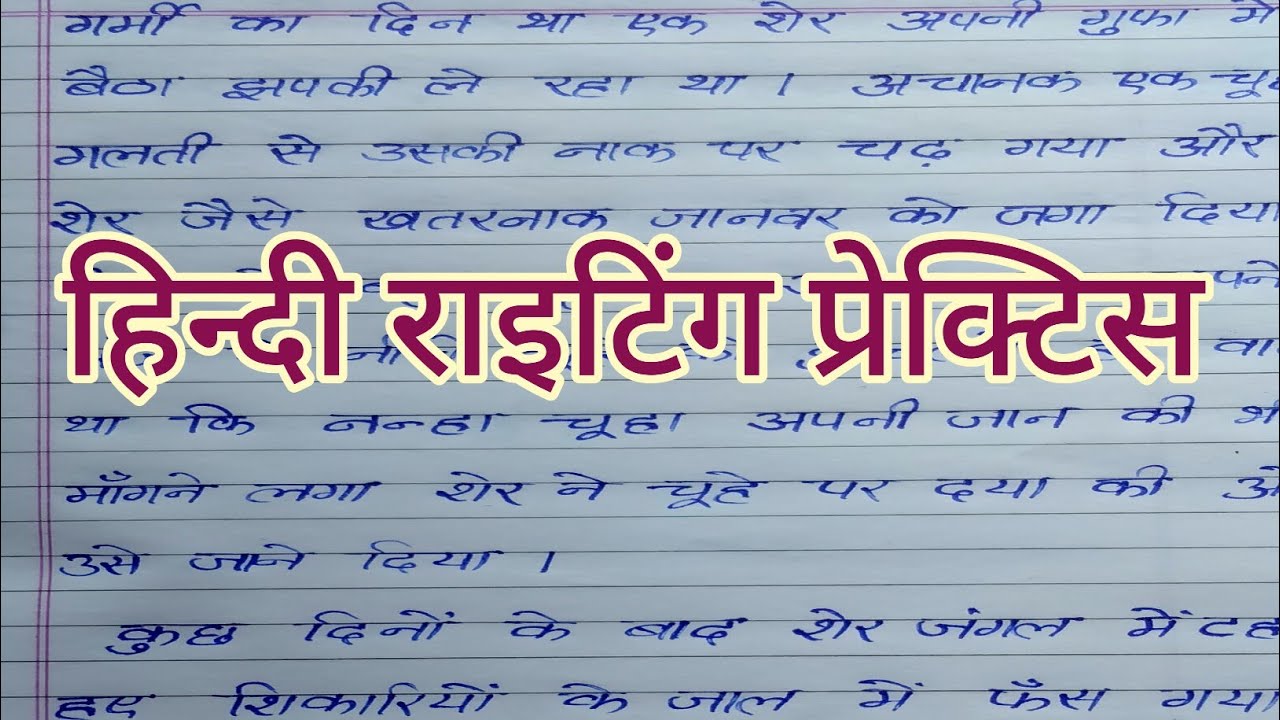 गर्मी का दिन था एक शेर अपनी गुफा में
बैठा झपकी ले रहा था । अचानक एक
गलती से उसकी नाक पर चढ़ गया और
शेर जैसे खतरनाक जानवर को जगा दिया
हिन्दी राइटिंग प्रेक्टिस
था कि नन्हा चूहा अपनी जान की
माँगने लगा शेर ने चूहे पर दया की
उसे जाने दिया ।
कुछ दिनों के बाद शेर जंगल में
हुए शिकारियों के जाल में फँस गया